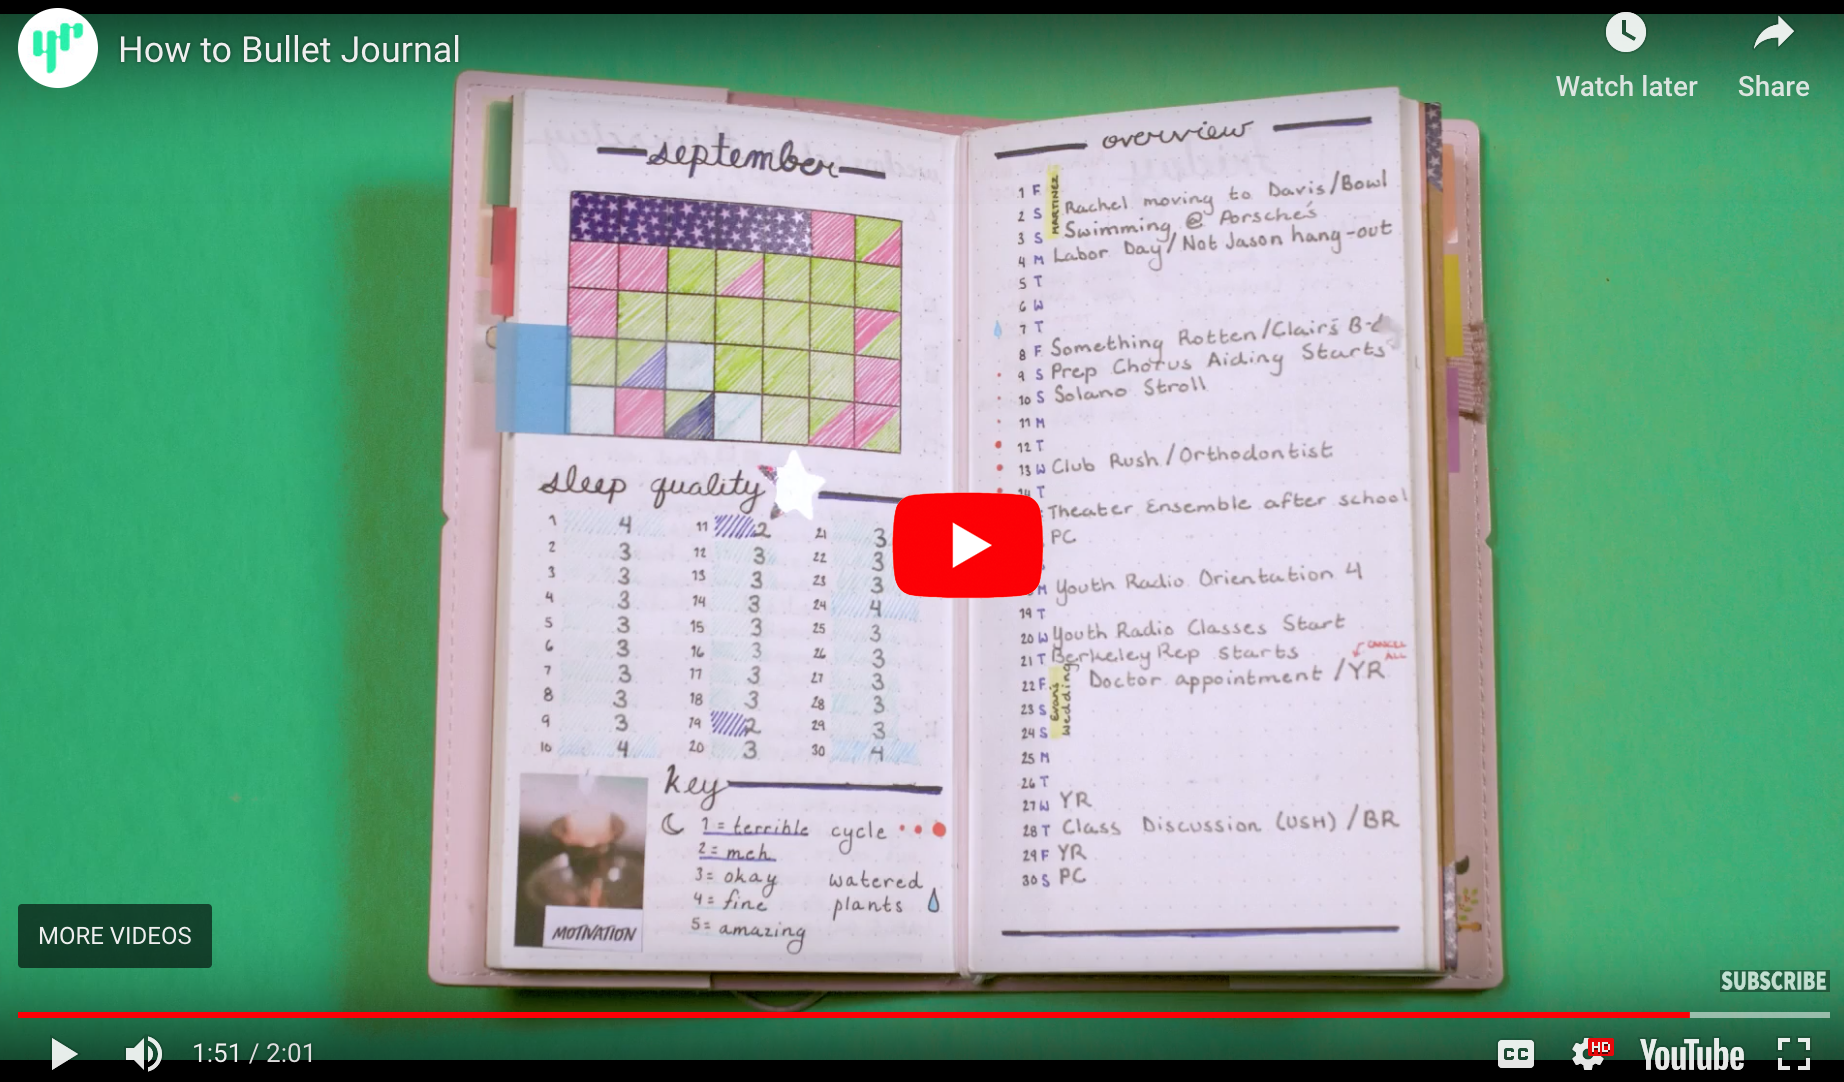 yr How to Bullet Journal
Watch later
Share
september
sleep quality
1 4
2 3
3 3
4 3
5 3
6 3
7 3
8 3
9 3
10 4
11 2
12 3
13 3
14 3
15 3
16 3
17 3
18 3
19 2
20 3
21 3
22 3
23 3
24 4
25 3
26 3
27 3
28 3
29 3
30 4
key
1 = terrible
2 = meh
3 = okay
4 = fine
5 = amazing
cycle
watered
plants
MOTIVATION
overview
MARTINEZ
1 F
2 S Rachel moving to Davis/Bowl
3 S Swimming @ Porsche's
4 M Labor Day/Not Jason hang-out
5 T
6 W
7 T
8 F Something Rotten/Clair's B-d
9 S Prep Chorus Aiding Starts
10 S Solano Stroll
11 M
12 T
13 W Club Rush/Orthodontist
14 T
Theater Ensemble after school
PC
M Youth Radio Orientation 4
19 T
20 W Youth Radio Classes Start
21 T Berkeley Rep starts
CANCEL
ALL
22 F Doctor appointment /YR
Evan's
wedding
23 S
24 S
25 M
26 T
27 W YR
28 T Class Discussion (USH) /BR
29 F YR
30 S PC
MORE VIDEOS
SUBSCRIBE
1:51 / 2:01
CC
HD
YouTube